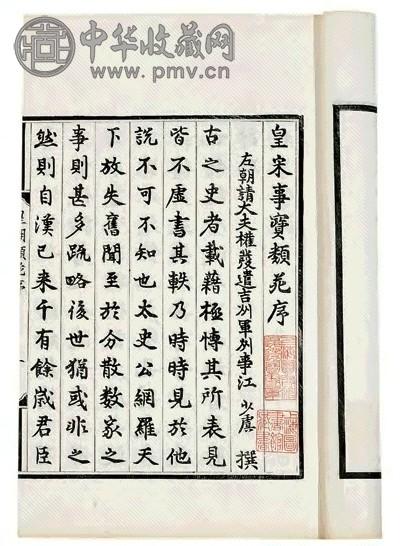 中华收藏网
www.pmv.cn
皇宋事寶類苑序
左朝請大夫權發遣吉州軍州事江少虞 撰
古之史者載藉極博其所表見
皆不虛書其軼乃時時見於他
說不可不知也太史公網羅天
下放失舊聞至於分散數家之
事則甚多疏略後世猶或非之
然則自漢已来千有餘歲君臣